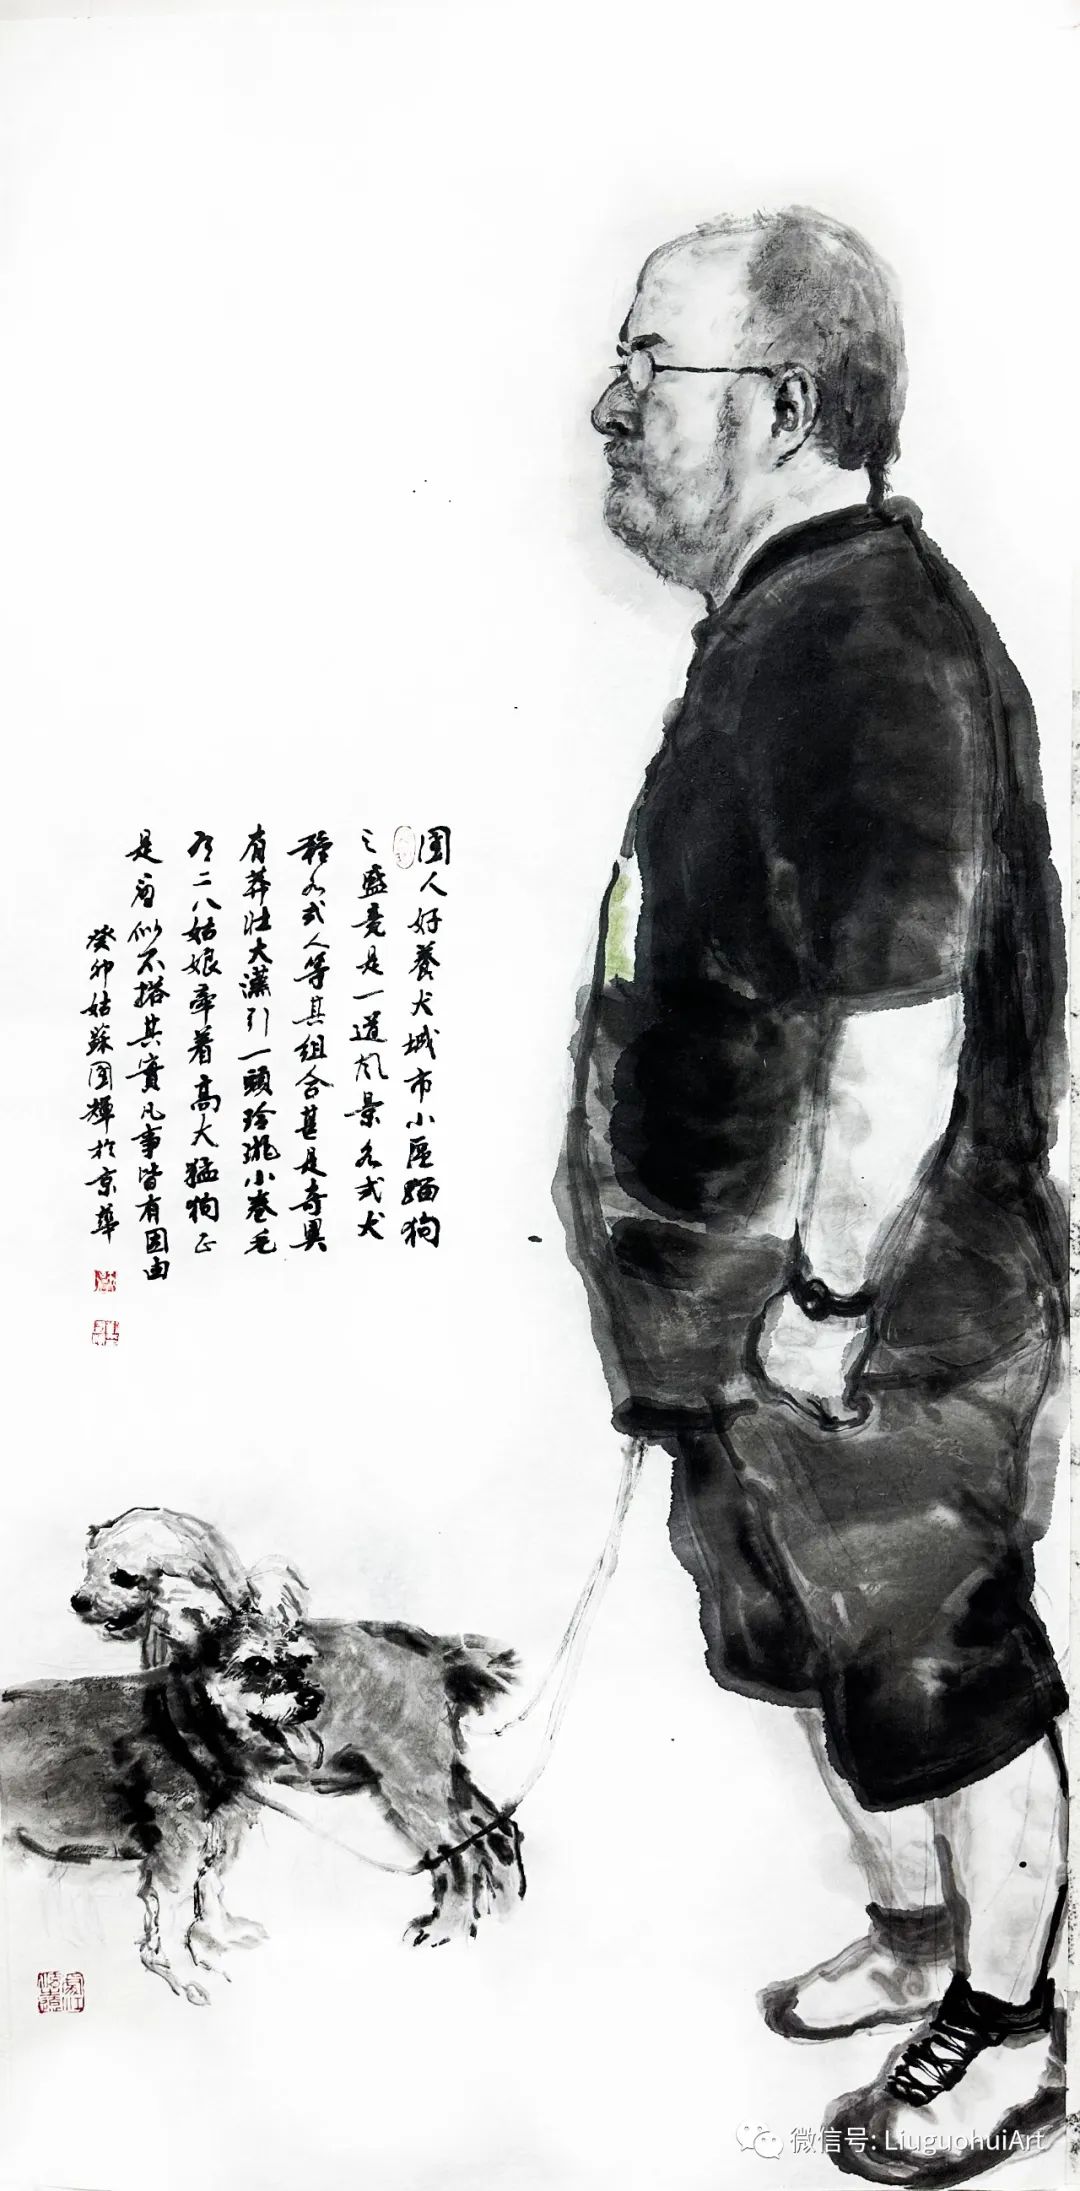 国人好養犬城市小區遛狗
之盛竟是一道风景各式犬
種各式人等其組合甚是奇異
有莽壮大漢引一頭玲瓏小卷毛
有二八姑娘牽着高大猛狗正
是看似不搭其實凡事皆有因由
癸卯姑蘇国輝於京華
微信号: LiuguohuiArt